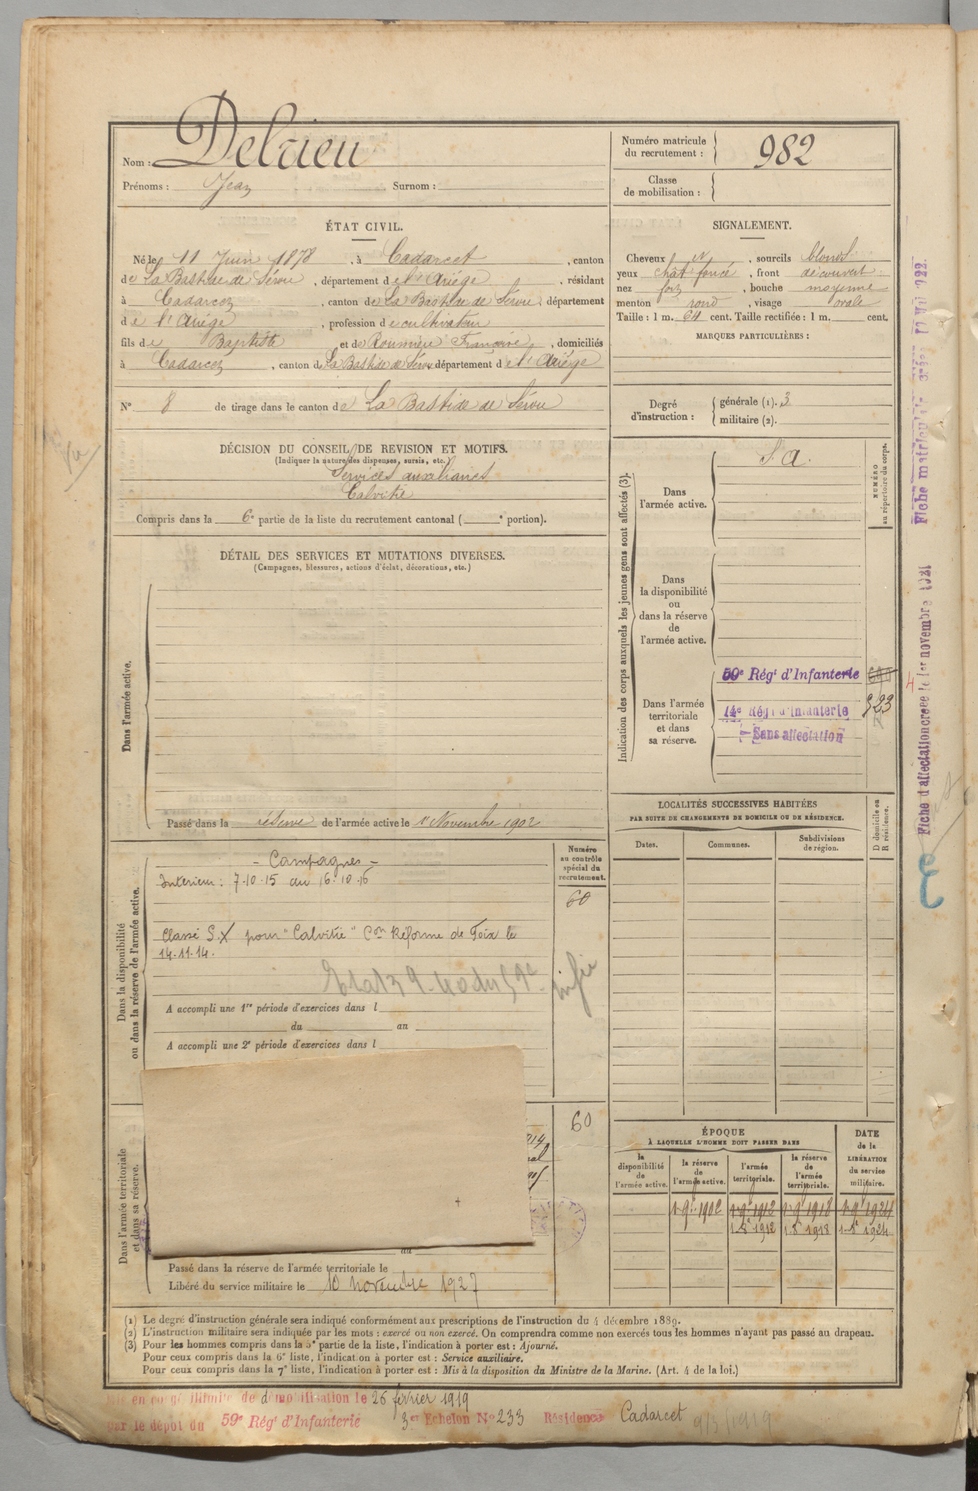 Nom : Delrieu
Prénoms : Jean Surnom :
Numéro matricule du recrutement : 982
Classe de mobilisation :
ÉTAT CIVIL.
Né le 11 Juin 1878, à Cadarcet, canton
de La Bastide de Sérou, département de l'Ariège, résidant
à Cadarcet, canton de La Bastide de Sérou, département
de l'Ariège, profession de cultivateur
fils de Baptiste et de Françoise, domiciliés
à Cadarcet, canton de La Bastide de Sérou département de l'Ariège
N° 8 de tirage dans le canton de La Bastide de Sérou
SIGNALEMENT.
Cheveux N, sourcils blonds
yeux chat foncé, front découvert
nez fort, bouche moyenne
menton rond, visage ovale
Taille : 1 m. 64 cent. Taille rectifiée : 1 m. cent.
MARQUES PARTICULIÈRES :
Degré d'instruction : générale (1). 3
militaire (2).
DÉCISION DU CONSEIL DE REVISION ET MOTIFS.
(Indiquer la nature des dispenses, sursis, etc.)
Services auxiliaires
Calvitie
Compris dans la 6e partie de la liste du recrutement cantonal ( e portion).
DÉTAIL DES SERVICES ET MUTATIONS DIVERSES.
(Campagnes, blessures, actions d'éclat, décorations, etc.)
Dans l'armée active.
Passé dans la réserve de l'armée active le 1er Novembre 1902
Indication des corps auxquels les jeunes gens sont affectés (3).
NUMÉRO au répertoire du corps.
Dans l'armée active.
S. A.
Dans la disponibilité ou dans la réserve de l'armée active.
Dans l'armée territoriale et dans sa réserve.
59e Régt d'Infanterie
14e Régt d'Infanterie
Sans affectation
323
Fiche matriculaire créée
Fiche d'affectation créée le 1er novembre 1921
LOCALITÉS SUCCESSIVES HABITÉES
PAR SUITE DE CHANGEMENTS DE DOMICILE OU DE RÉSIDENCE.
Dates.
Communes.
Subdivisions de région.
D domicile ou R résidence.
Dans la disponibilité ou dans la réserve de l'armée active.
Numéro au contrôle spécial du recrutement.
60
- Campagnes -
Intérieur : 7-10-15 au 16-10-16
Classé S.X pour "Calvitie" Con Réforme de Foix le
14-11-14.
A accompli une 1re période d'exercices dans l
du au
A accompli une 2e période d'exercices dans l
Dans l'armée territoriale et dans sa réserve.
60
au
Passé dans la réserve de l'armée territoriale le
Libéré du service militaire le 10 novembre 1927
ÉPOQUE
À LAQUELLE L'HOMME DOIT PASSER DANS
la disponibilité de l'armée active.
la réserve de l'armée active.
l'armée territoriale.
la réserve de l'armée territoriale.
DATE de la LIBÉRATION du service militaire.
1-9bre 1902 1-9bre 1912 1-9bre 1918 1-9bre 1924
1-8bre 1912 1-8bre 1918 1-8bre 1924
(1) Le degré d'instruction générale sera indiqué conformément aux prescriptions de l'instruction du 4 décembre 1889.
(2) L'instruction militaire sera indiquée par les mots : exercé ou non exercé. On comprendra comme non exercés tous les hommes n'ayant pas passé au drapeau.
(3) Pour les hommes compris dans la 5e partie de la liste, l'indication à porter est : Ajourné.
Pour ceux compris dans la 6e liste, l'indication à porter est : Service auxiliaire.
Pour ceux compris dans la 7e liste, l'indication à porter est : Mis à la disposition du Ministre de la Marine. (Art. 4 de la loi.)
en congé illimité de démobilisation le 26 février 1919
par le dépôt du 59e Régt d'Infanterie 3er Echelon N° 233 Résidence Cadarcet 9/3/1919